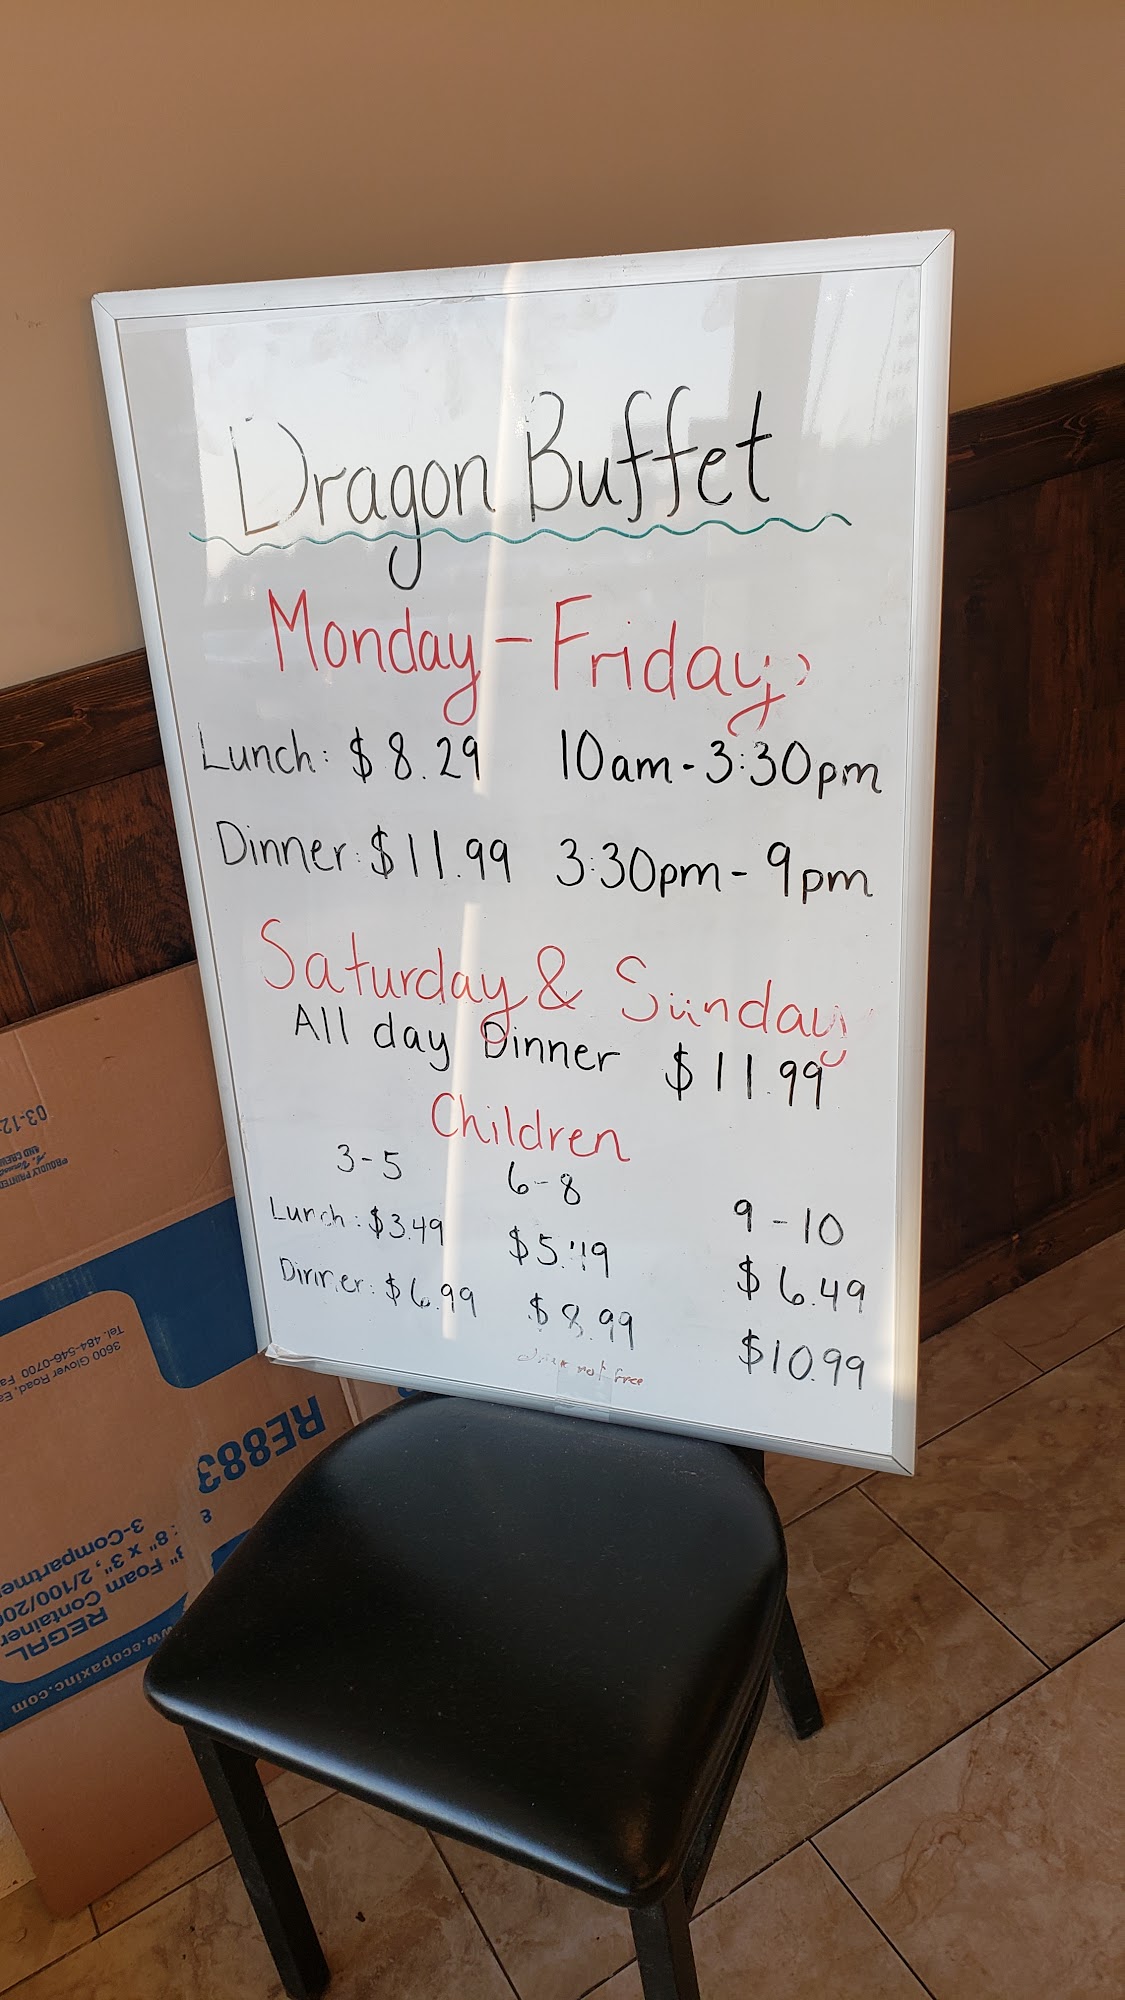 Dragon Buffet
Monday - Friday
Lunch: $8.29 10am - 3:30pm
Dinner: $11.99 3:30pm - 9pm
Saturday & Sunday
All day Dinner $11.99
Children
3-5 6-8 9-10
Lunch: $3.49 $5.49 $6.49
Dinner: $6.99 $8.99 $10.99
not free
03-12
PROUDLY PRINTED
AND CREA
3600 Glover Road, Ea
Tel. 484-546-0700 Fa
RE883
8
3-Compartme
8" x 3", 2/100/200
" Foam Container
REGAL
ww.ecopaxinc.com